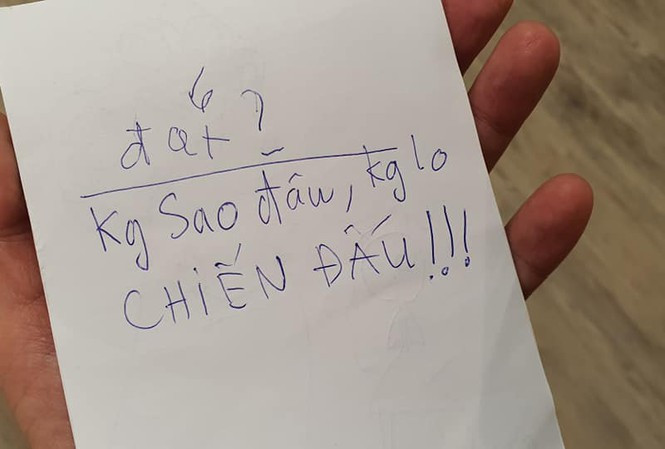 đắt ?
kg sao đâu, kg lo
CHIẾN ĐẤU!!!